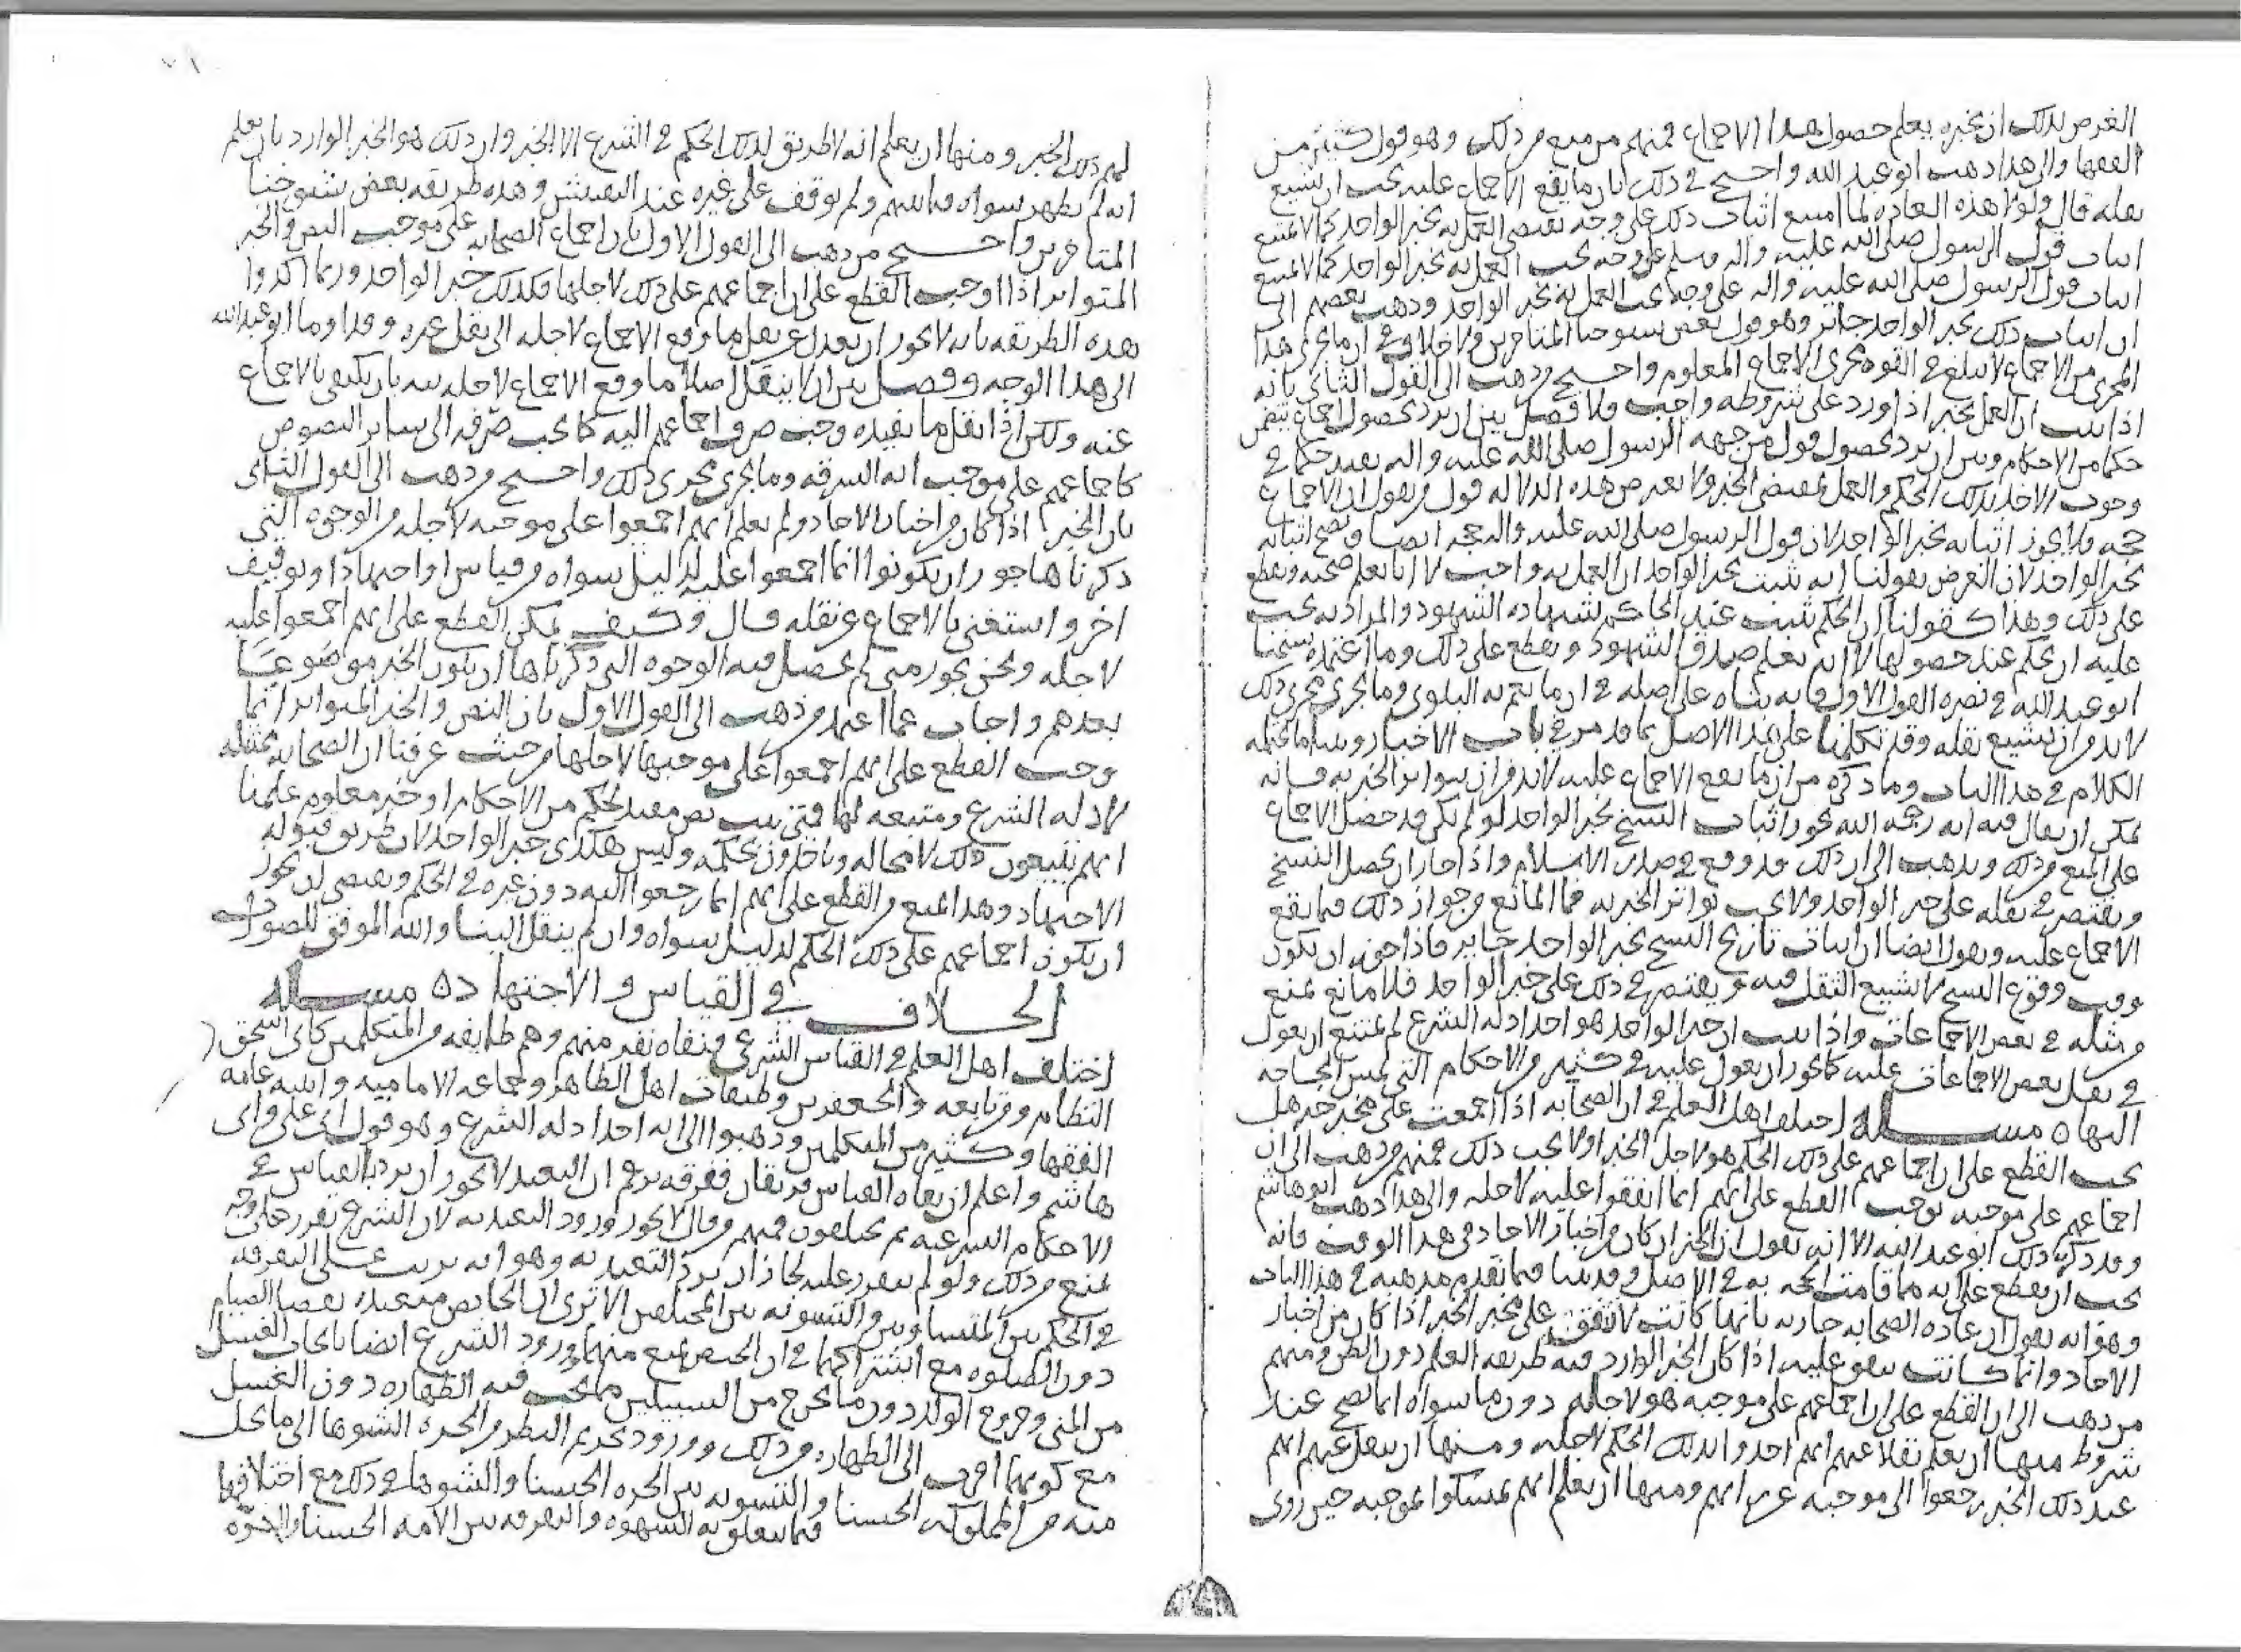 الغرض بذلك ان بخبره يعلم حصول هذا الاجماع فمنهم من منع من ذلك وهو قول كثير من
الفقها والى هذا ذهب ابو عبد الله واحتج في ذلك بان ما يقع الاجماع عليه يجب ان يشيع
نقله قال ولولا هذه العاده لما امتنع اثبات ذلك على وجه يقتضي العمل به بخبر الواحد كما لا يمتنع
اثبات قول الرسول صلى الله عليه واله وسلم على وجه يجب العمل به بخبر الواحد كما لا يمتنع
اثبات قول الرسول صلى الله عليه واله على وجه يجب العمل به بخبر الواحد وذهب بعضهم الى
ان اثبات ذلك بخبر الواحد جائز وهو قول بعض شيوخنا المتاخرين ولا خلاف في ان ما يجري هذا
المجرى من الاجماع لا يبلغ في القوه مجرى الاجماع المعلوم واحتج من ذهب الى القول الثاني بانه
اذا ثبت ان العمل بخبر اذا ورد على شروطه واجب ولا فصل بين ان يرد بحصول اجماع يتضمن
حكما من الاحكام وبين ان يرد بحصول قول من جهه الرسول صلى الله عليه واله يفيد حكما في
وجوب الاخذ بذلك الحكم والعمل بمقتضى الخبر ولا يعترض هذه الدلاله قول من يقول ان الاجماع
حجه فلا يجوز اثباته بخبر الواحد لان قول الرسول صلى الله عليه واله حجه ايضا ويصح اثباته
بخبر الواحد لان الغرض بقولنا انه ثبت بخبر الواحد ان العمل به واجب لا انا نعلم صحته ونقطع
على ذلك وهذا كقولنا ان الحكم ثبت عند الحاكم بشهاده الشهود والمراد به يجب
عليه ان يحكم عند حصولها لا انه يعلم صدق الشهود ويقطع على ذلك وما اعتمده شيخنا
ابو عبد الله في نصره القول الاول فانه بناه على اصله في ان ما يعم به البلوى وما يجري مجرى ذلك
لا بد من ان يشيع نقله وقد تكلمنا على هذا الاصل بما قد مر في باب الاخبار وبينا ما يحتمله
الكلام في هذا الباب وما ذكره من ان ما يقع الاجماع عليه لا بد من ان يتواتر الخبر به فانه
يمكن ان يقال فيه انه رحمه الله يجوز اثبات النسخ بخبر الواحد لو لم يكن قد حصل الاجماع
على المنع من ذلك ويذهب الى ان ذلك قد وقع في صدر الاسلام واذا جاز ان يحصل النسخ
ويقتصر في نقله على خبر الواحد ولا يجب تواتر الخبر به فما المانع من جواز ذلك فيما يقع
الاجماع عليه ويقول ايضا ان اثبات تاريخ النسخ بخبر الواحد جايز فاذا جوز ان يكون
وقت وقوع النسخ لا يشيع النقل فيه ويقتصر في ذلك على خبر الواحد فلا مانع يمنع
من مثله في بعض الاجماعات واذا ثبت ان خبر الواحد هو احد ادله الشرع لم يمتنع ان يعول
في نقل بعض الاجماعات عليه كما يجوز ان يعول عليه في كثير من الاحكام التي تمس الحاجه
اليها ه مسله اختلف اهل العلم في ان الصحابه اذا اجمعت على مخبر خبر هل
يجب القطع على ان اجماعهم على ذلك الحكم هو لاجل الخبر او لا يجب ذلك فمنهم من ذهب الى ان
اجماعهم على موجبه يوجب القطع على انهم انما اتفقوا عليه لاجله والى هذا ذهب ابو هاشم
وقد ذكر ذلك ابو عبد الله الا انه يقول ان الخبر ان كان من اخبار الاحاد في هذا الوقت فانه
يجب ان يقطع على انه مما قامت الحجه به في الاصل وقد بينا فيما تقدم مذهبه في هذا الباب
وهو انه يقول ان عاده الصحابه جاريه بانها كانت لا تتفق على مخبر الخبر اذا كان من اخبار
الاحاد وانما كانت تتفق عليه اذا كان الخبر الوارد فيه طريقه العلم دون الظن ومنهم
من ذهب الى ان القطع على ان اجماعهم على موجبه هو لاجله دون ما سواه انما يصح عند
شروط منها ان يعلم نقلا عنهم انهم اخذوا بذلك الحكم لاجله ومنها ان ينقل عنهم انهم
عند ذلك الخبر رجعوا الى موجبه عن رايهم ومنها ان يعلم انهم تمسكوا بموجبه حين روي
لهم ذلك الخبر ومنها ان يعلم انه لا طريق لذلك الحكم في الشرع الا الخبر وان ذلك هو الخبر الوارد بان يعلم
انه لم يظهر سواه فيما بينهم ولم يوقف على غيره عند التفتيش وهذه طريقه بعض شيوخنا
المتاخرين واحتج من ذهب الى القول الاول بان اجماع الصحابه على موجب النص والخبر
المتواتر اذا اوجب القطع على ان اجماعهم على ذلك لاجلها فكذلك خبر الواحد وربما اكدوا
هذه الطريقه بانه لا يجوز ان يعدل عن نقل ما وقع الاجماع لاجله الى نقل غيره وقد اوما ابو عبد الله
الى هذا الوجه وفصل بين ان لا ينقل اصلا ما وقع الاجماع لاجله بان يكتفى بالاجماع
عنه ولكن اذا نقل ما يفيده وجب صرف اجماعهم اليه كما يجب صرفه الى ساير النصوص
كاجماعهم على موجب ايه السرقه وما يجري مجرى ذلك واحتج من ذهب الى القول الثاني
بان الخبر اذا كان من اخبار الاحاد ولم يعلم انهم اجمعوا على موجبه لاجله من الوجوه التي
ذكرناها جوز ان يكونوا انما اجمعوا عليه لدليل سواه من قياس او اجتهاد او توقيف
اخر واستغني بالاجماع عن نقله قال وكيف يمكن القطع على انهم اجمعوا عليه
لاجله ونحن نجوز متى لم يحصل فيه الوجوه التي ذكرناها ان يكون الخبر موضوعا
بعدهم واجاب عما اعتمد من ذهب الى القول الاول بان النص والخبر المتواتر انما
وجب القطع على انهم اجمعوا على موجبها لاجلها من حيث عرفنا ان الصحابه ممتثله
لادله الشرع ومتبعه لها فمتى ثبت نص مفيد لحكم من الاحكام او خبر معلوم علمنا
انهم يتبعون ذلك لا محاله وياخذون بحكمه وليس هكذى خبر الواحد لان طريق قبوله
الاجتهاد وهذا يمنع من القطع على انهم انما رجعوا اليه دون غيره في الحكم ويقتضي ان يجوز
ان يكون اجماعهم على ذلك الحكم لدليل سواه وان لم ينقل الينا والله الموفق للصواب
الخلاف في القياس والاجتهاد ه مسله
اختلف اهل العلم في القياس الشرعي فنفاه نفر منهم وهم طايفه من المتكلمين كابي اسحق
النظام ومن تابعه والجعفرين وطبقات اهل الظاهر وجماعه الاماميه واثبته عامه
الفقها وكثير من المتكلمين وذهبوا الى انه احد ادله الشرع وهو قول ابي علي وابي
هاشم واعلم ان نفاه القياس فريقان ففرقه تزعم ان التعبد لا يجوز ان يرد بالقياس في
الاحكام الشرعيه ثم يختلفون فمنهم من قال لا يجوز ورود التعبد به لان الشرع تقرر على وجه
يمنع من ذلك ولو لم يتقرر عليه لجاز ان يرد التعبد به وهو انه ترتب على التفرقه
في الحكم بين المتساويين والتسويه بين المختلفين الا ترى ان الحائض متعبده بقضا الصيام
دون الصلوه مع اشتراكهما في ان الحيض يمنع منهما وورود الشرع ايضا بايجاب الغسل
من المني وخروج الولد دون ما يخرج من السبيلين مما يجب فيه الطهاره دون الغسل
مع كونهما اقرب الى الطهاره من ذلك وورود تحريم النظر من الحره الشوها الى ما يحل
منه من المملوكه الحسنا والتسويه بين الحره الحسنا والشوها في ذلك مع اختلافهما
فيما يتعلق به الشهوه والتفرقه بين الامه الحسنا والحره